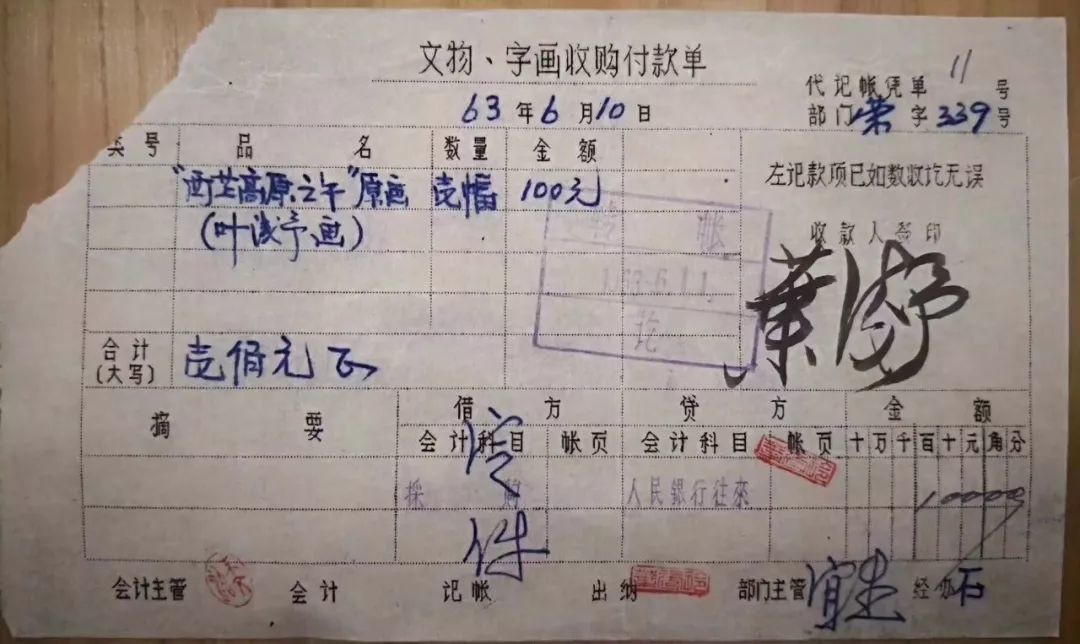 文物、字画收购付款单
63年6月10日
代记帐凭单 11 号
部门荣字339号
类号 品名 数量 金额
左记款项已如数收讫无误
"西芷高原之午"原画 壱幅 100元
(叶浅予画)
转帐
1963.6.11.
讫
收款人签印
葉浅予
合计
(大写)
壱佰元正
摘要 借方 贷方 金额
会计科目 帐页 会计科目 帐页 十万千百十元角分
採购 人民銀行往來 10000
会计主管 会计 记帐 出纳 部门主管 经办 石